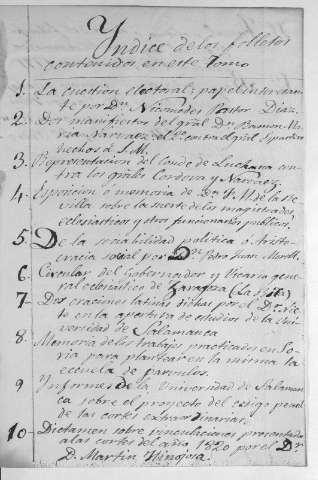 Yndice de los folletos
contenidos en este Tomo
1. La cuestion electoral: papel interesante
por Dn. Nicomedes Pastor Diaz.
2. Dos manifiestos del gral Dn. Ramon Ma
ria Narvaez, el 2º contra el gral Espartero
hechos á S.M.
3. Representacion del Conde de Luchana con
tra los grales Cordova y Narvaez
4. Exposicion ó memoria de Dn. F. M. de la Se
villa sobre la suerte de los magistrados,
eclesiasticos y otros funcionarios publicos.
5. De la sociabilidad politica ó aristo
cracia social por Dn. Juan
6. Circular del Gobernador y Vicario gene
ral eclesiastico de Zaragoza
7. Dos oraciones latinas dichas por
to en la apertura de estudios de la Uni
versidad de Salamanca
8. Memoria de los trabajos practicados en So
ria para plantear en la misma la
escuela de parvulos.
9 Ynformes de la Universidad de Salaman
ca sobre el proyecto del codigo penal
de las cortes extraordinarias
10 Dictamen sobre vinculaciones presentado
a las cortes del año 1820 por el Dr.
D. Martin Hinojosa.